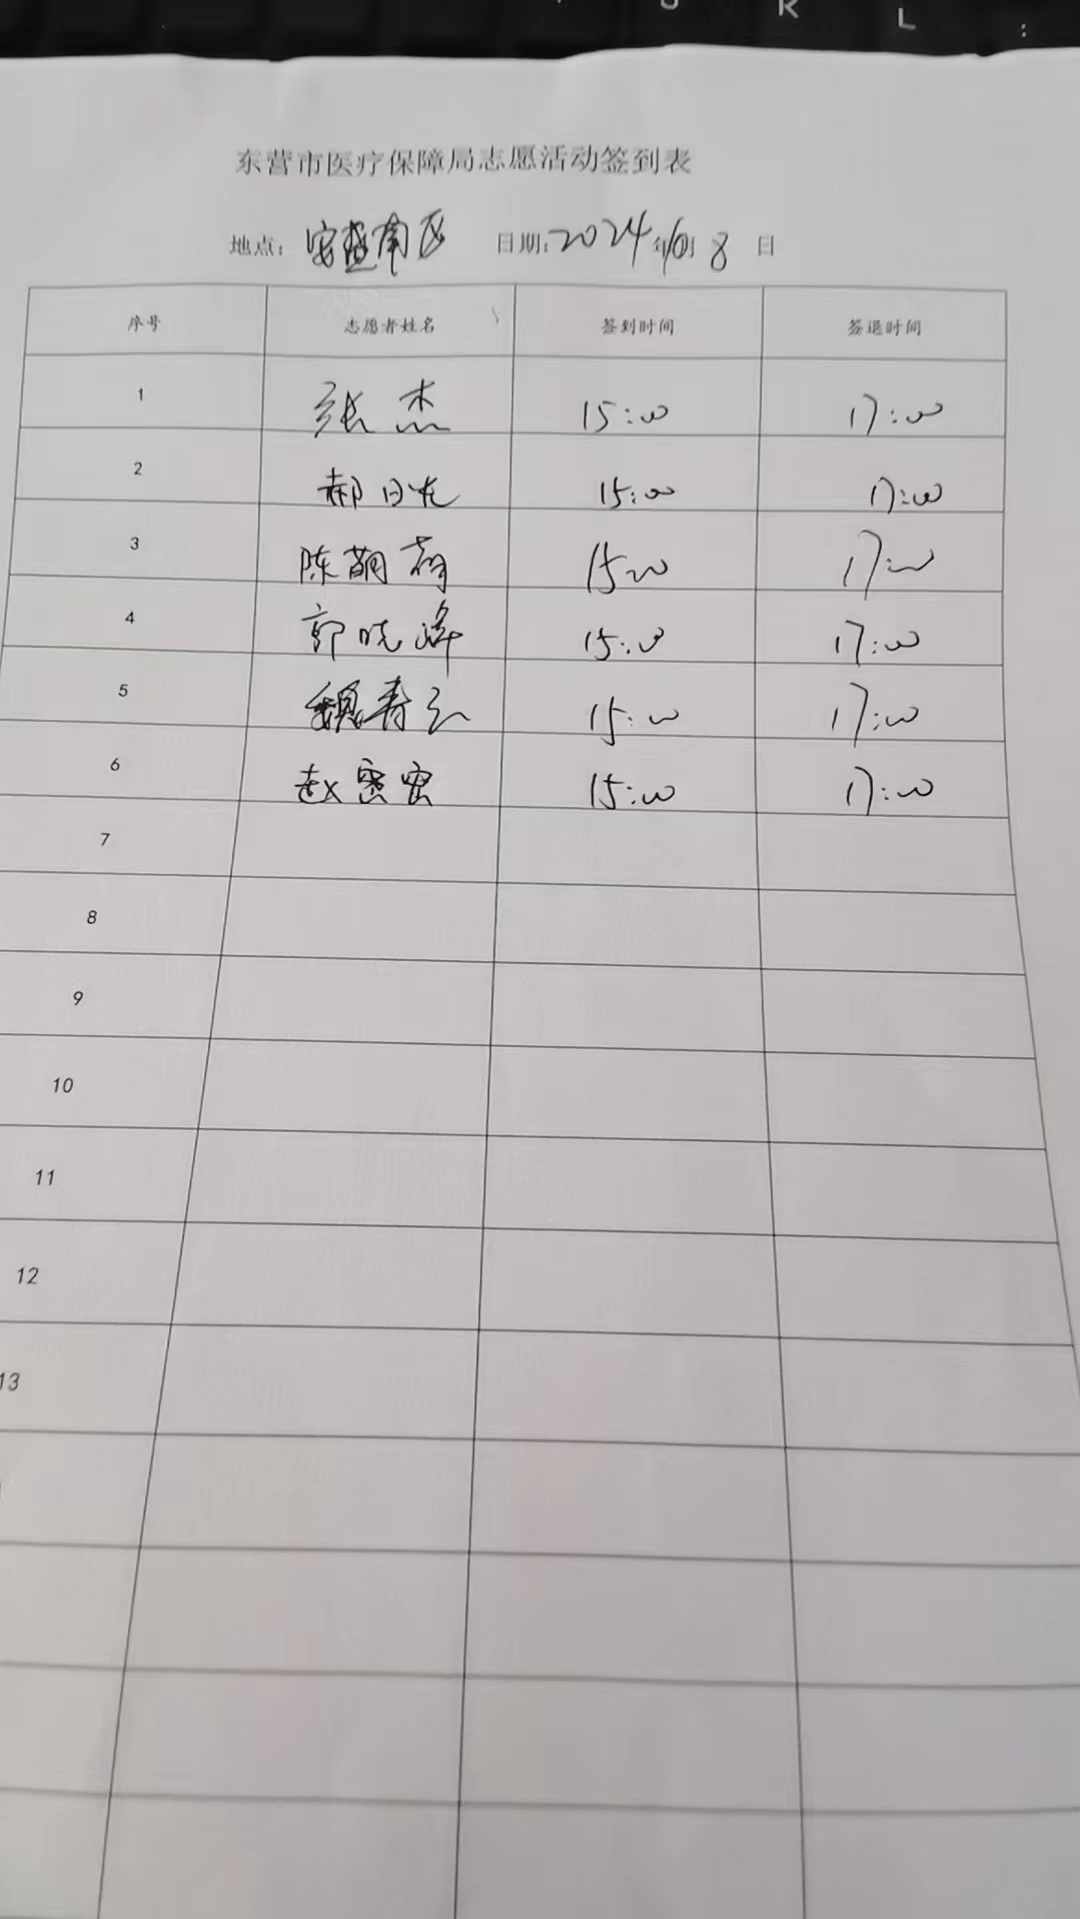 K L :
东营市医疗保障局志愿活动签到表
地点: 安盛南区 日期: 2024年10月8日
序号 志愿者姓名 签到时间 签退时间
1 张杰 15:00 17:00
2 郝日光 15:00 17:00
3 陈萌萌 1500 17:00
4 郭晓峰 15:00 17:00
5 魏寿云 15:00 17:00
6 赵密密 15:00 17:00
7
8
9
10
11
12
13